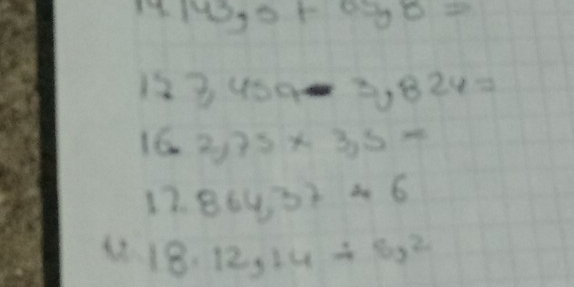 14. 143,5 + 65,8 =
15 7,459 - 3,824 =
16. 2,75 x 3,5 =
17. 864,37 ÷ 6
18. 12,14 ÷ 8,2